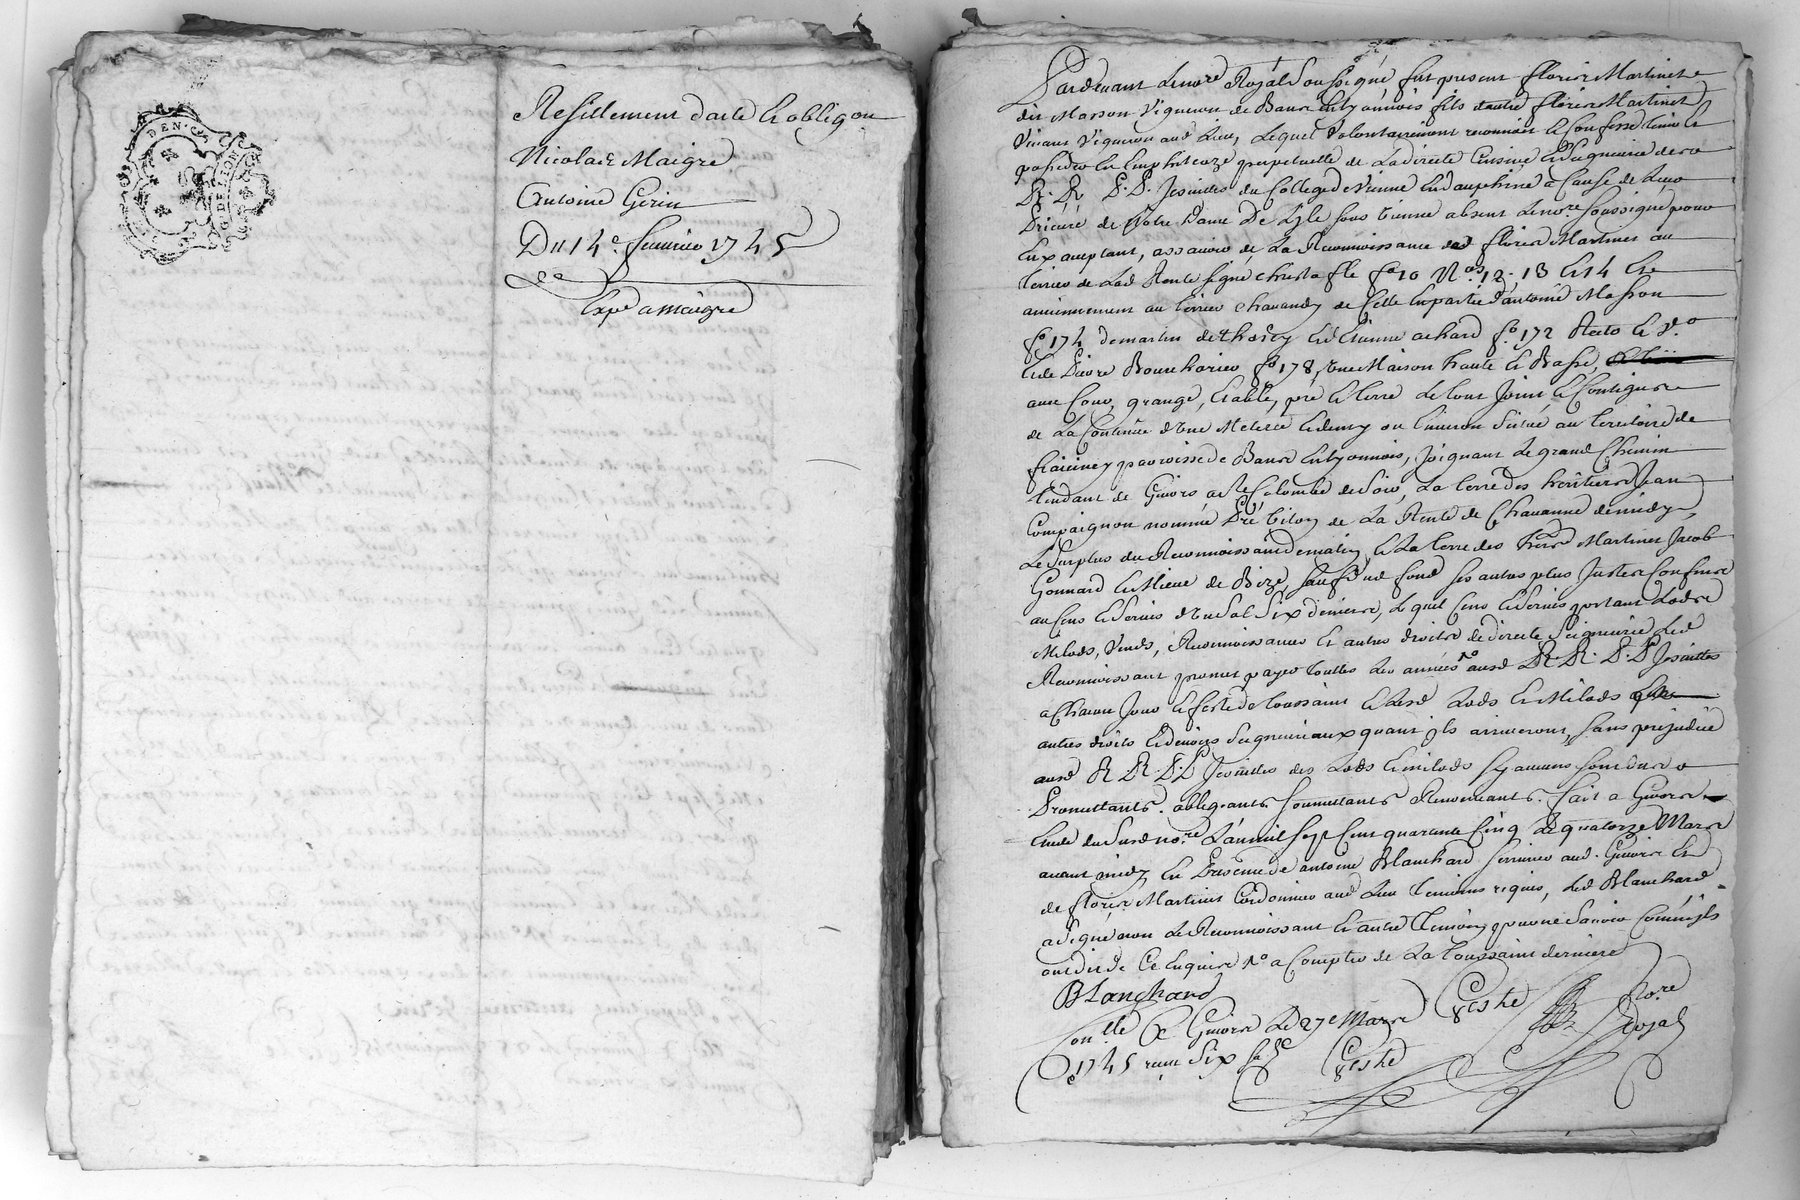 DEN.
G. DE LION
Resillement dacte et obligon
Nicolas Maigre
Antoine Gerin
Du 14e. feuurier 1745
Expe a maigre
Pardeuant le no.re Royal Soussigné fut present fleurie Martinet
dit Masson Vigneron de Bans en lyonnois fils dautre fleurie Martinet
Viuant Vigneron aud lieu, Lequel Volontairement reconnoit et Confesse tenir et
posseder en Emphiteoze perpetuelle de La directe Censiue et Seigneurie de
R. R. P. P. Jesuittes du College de Vienne en dauphiné a Cause de leur
Prieuré de Notre Dame De Lisle sous Vienne absent le no.re soussigné pour
Eux acceptant, assauoir de La Reconnoissance de fleurie Martinet au
terrier de lad Rente signé fo 10 Nos 12. 13 et 14 Et
anciennement au terrier chauand de Celle en partie d'antoine Masson
fo 174 de martin et d'Etienne achard fo. 172 Recto et Vo.
et de Pierre Bonnehorieu fo 178, une Maison haute et Basse,
auec Cour, grange, Etable, pré et terre le tout Joint et Contigus
de La Contenüe d'une Meterée et demy ou Enuiron Situé au territoire de
parroisse de Bans en lyonnois, Joignant le grand Chemin
tendant de Giuors a ste Colombe de soir, La terre des heritiers Jean
Compaignon nommé Pré de La Rente de Chauanne de midy,
Le Surplus du Reconnoissant de matin, et La terre des hers Martinet Jacob
Gonnard et de Bize, sauf ses autres plus Justes Confins
au Cens et Seruis d'un Sol Six deniers, Lequel Cens et Seruis portant Lods
Milods, Vends, Reconnoissances et autres droits de directe Seigneurie Led
Reconnoissant promet payer toutes les années ausd R. R. P. P. Jesuittes
a Chacun Jour et feste de toussaint et Lesd Lods et Milods
autres droits et deuoirs Seigneuriaux quant ils arriueront, Sans prejudice
ausd R. R. P. P. Jesuittes des Lods et milods sy aucuns sont dus
Promettants. obligeants. Soumettants Renonceants. fait a Giuors
Etude du susd no.re L'an mil Sept Cent quarante Cinq Le quatorze Mars
auant midy En Presence de antoine Blanchard serrurier aud. Giuors Et
de fleurie Martinet Cordonnier aud Lieu temoins requis, Led Blanchard
a Signé non le Reconnoissant et autre temoin pour ne Sauoir Comme ils
ont dit de Ce Enquis a Compter de La toussaint derniere
Blanchard
No.re
Royal
Conlle A Giuors Le 27e Mars
1745 reçu six s